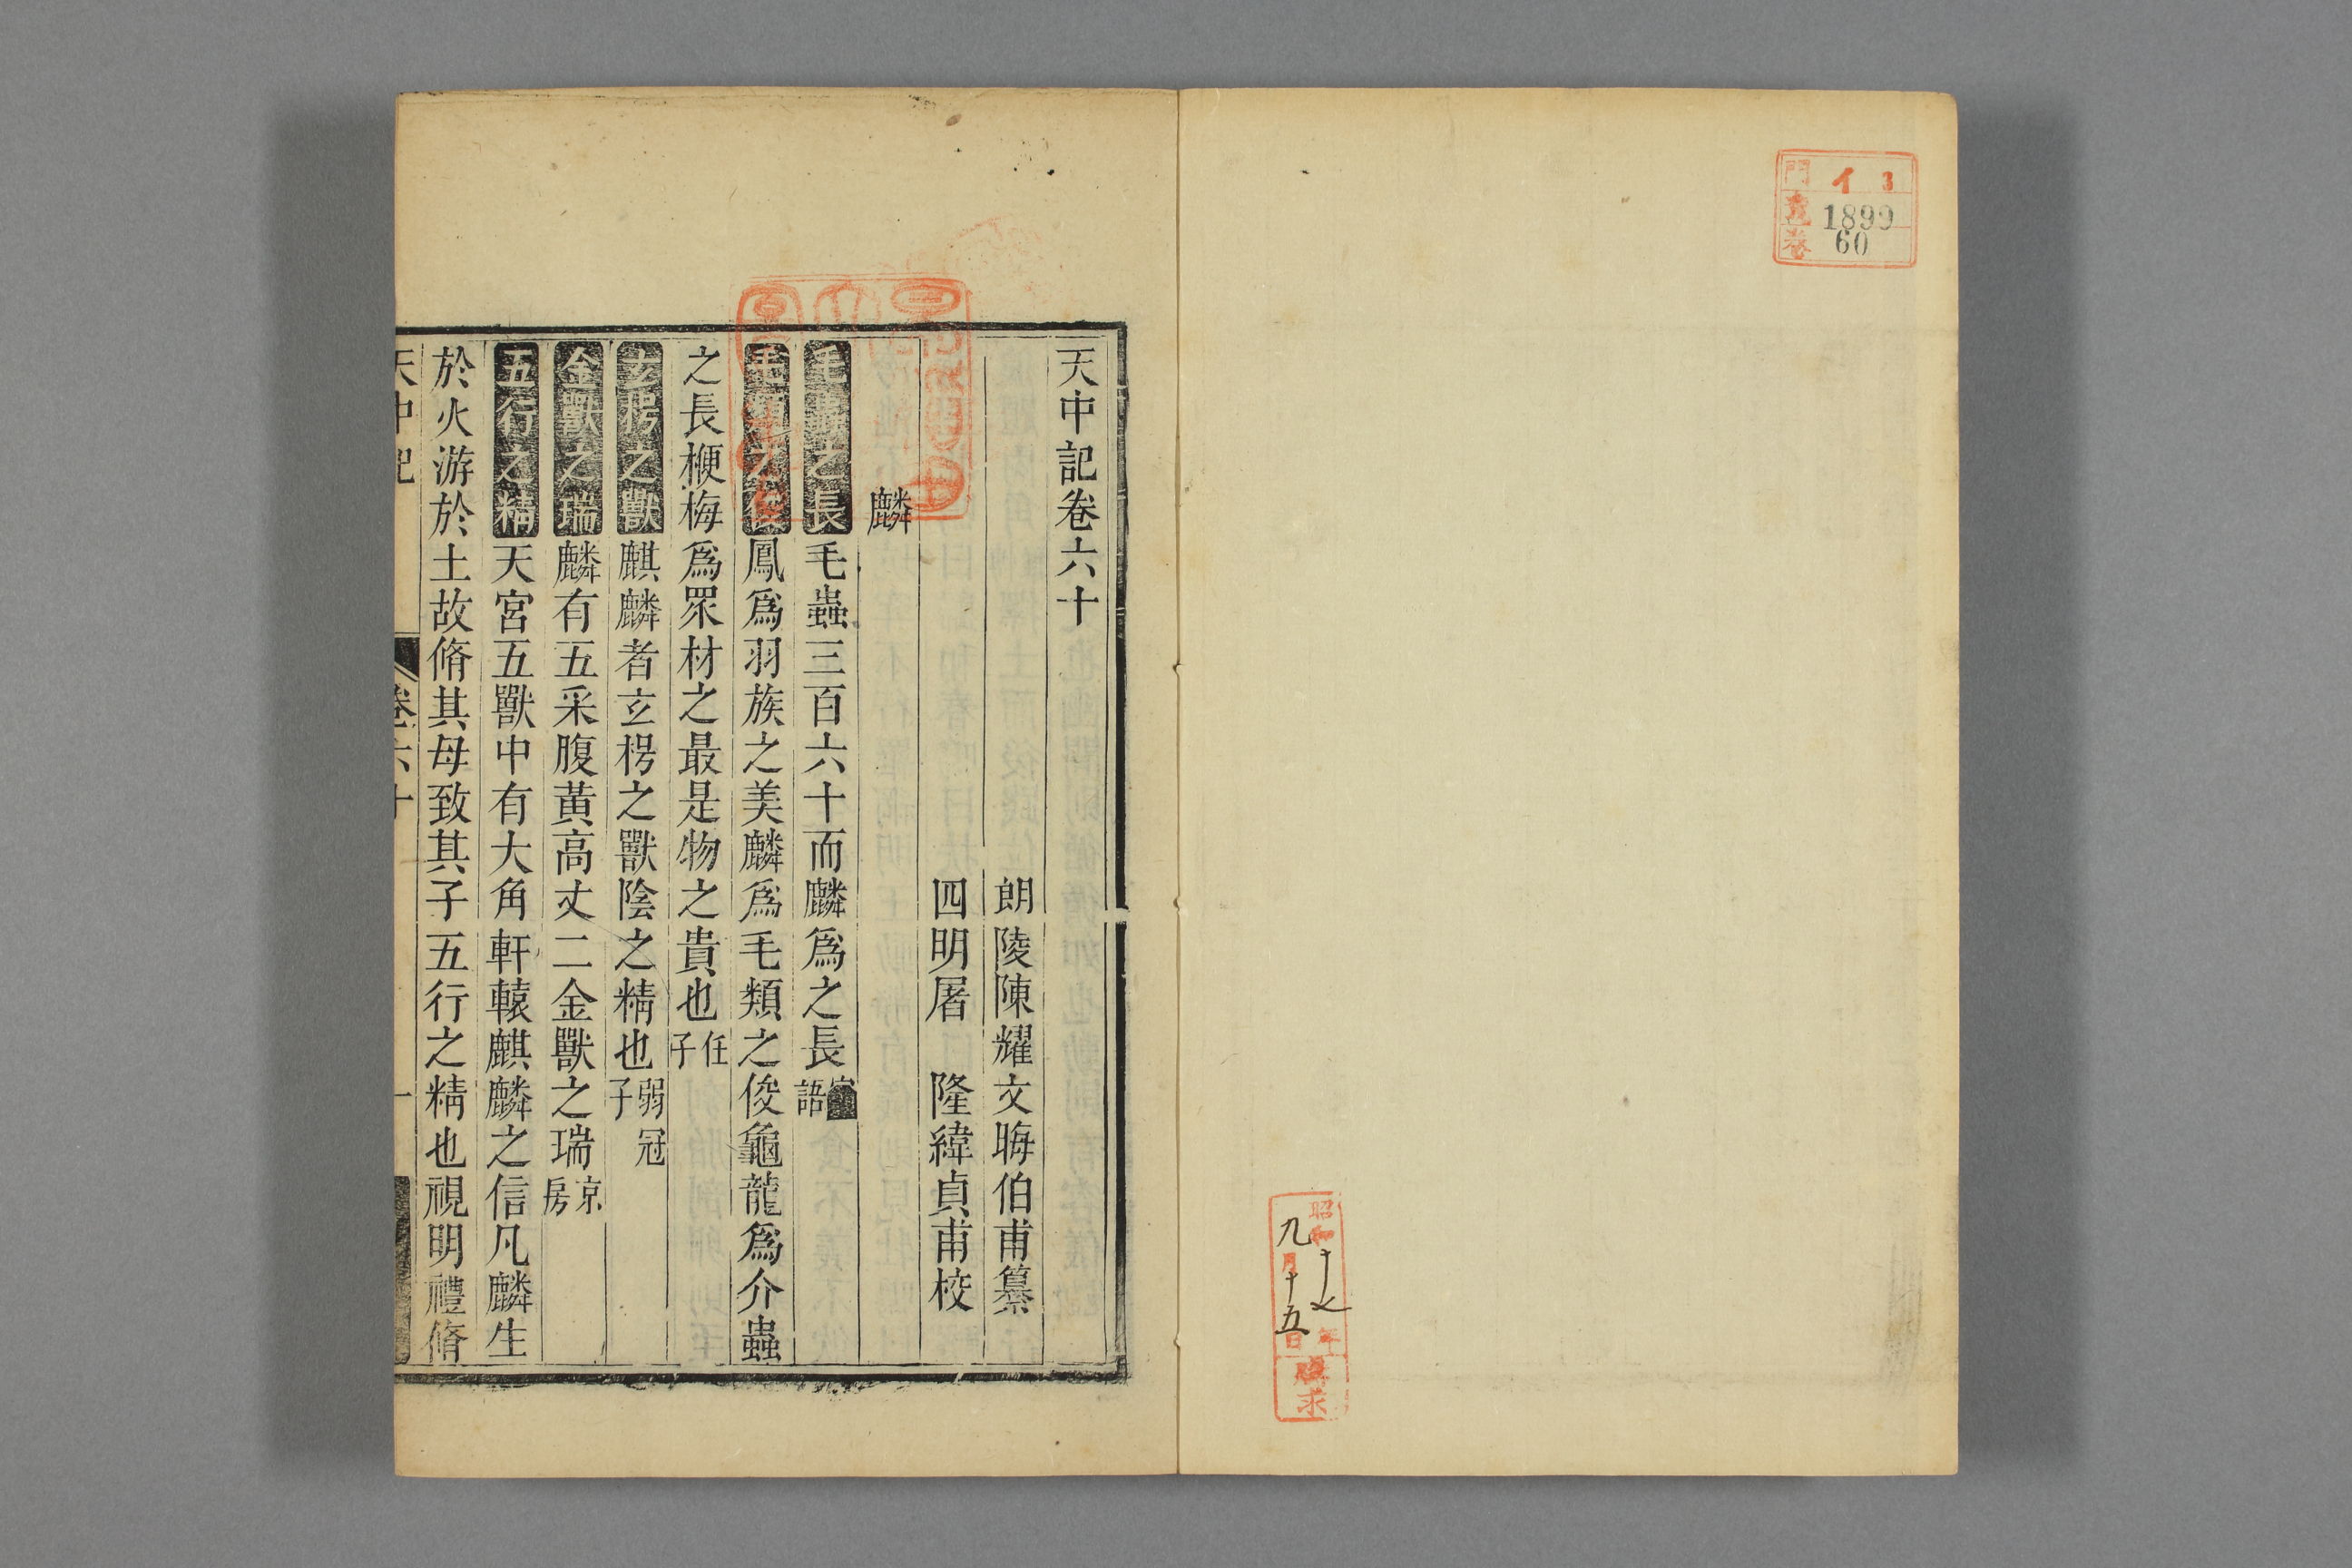 門 イ 3
號 1899
卷 60
昭和十七年
九月十五日
購求
天中記卷六十
朗陵陳耀文晦伯甫纂
四明屠隆緯貞甫校
麟
毛蟲之長 毛蟲三百六十而麟爲之長 家語
毛類之俊 鳳爲羽族之美麟爲毛類之俊龜龍爲介蟲
之長楩梅爲眾材之最是物之貴也 任子
玄枵之獸 麒麟者玄枵之獸陰之精也 弱冠子
金獸之瑞 麟有五采腹黃高丈二金獸之瑞 京房
五行之精 天宮五獸中有大角軒轅麒麟之信凡麟生
於火游於土故脩其母致其子五行之精也視明禮脩
天中記 卷六十 一